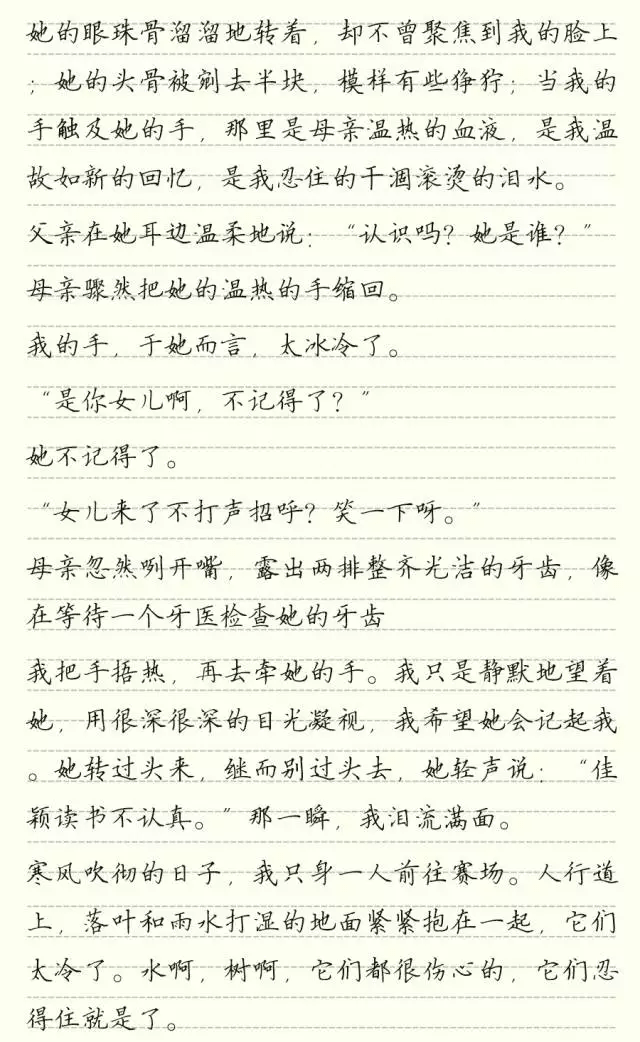 她的眼珠骨溜溜地转着，却不曾聚焦到我的脸上
；她的头骨被剜去半块，模样有些狰狞；当我的
手触及她的手，那里是母亲温热的血液，是我温
故如新的回忆，是我忍住的干涸滚烫的泪水。
父亲在她耳边温柔地说：“认识吗？她是谁？”
母亲骤然把她的温热的手缩回。
我的手，于她而言，太冰冷了。
“是你女儿啊，不记得了？”
她不记得了。
“女儿来了不打声招呼？笑一下呀。”
母亲忽然咧开嘴，露出两排整齐光洁的牙齿，像
在等待一个牙医检查她的牙齿
我把手捂热，再去牵她的手。我只是静默地望着
她，用很深很深的目光凝视，我希望她会记起我
。她转过头来，继而别过头去，她轻声说：“佳
颖读书不认真。”那一瞬，我泪流满面。
寒风吹彻的日子，我只身一人前往赛场。人行道
上，落叶和雨水打湿的地面紧紧抱在一起，它们
太冷了。水啊，树啊，它们都很伤心的，它们忍
得住就是了。